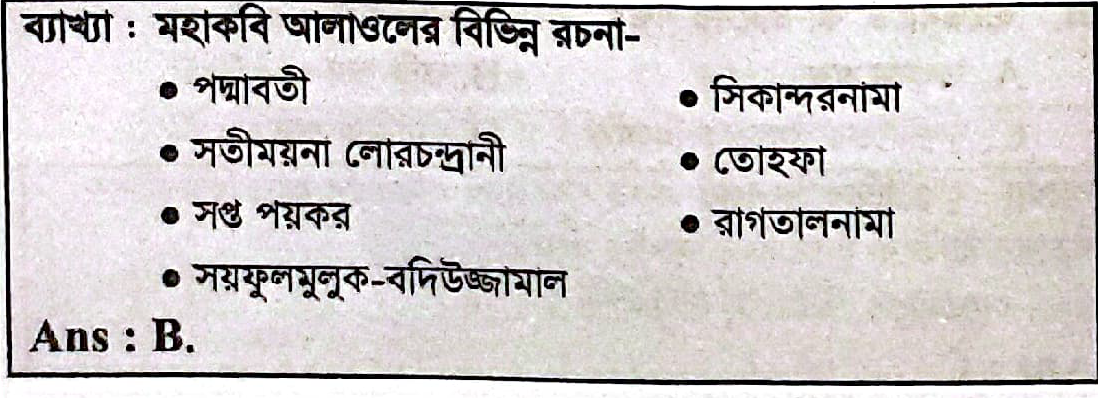 ব্যাখ্যা : মহাকবি আলাওলের বিভিন্ন রচনা-
• পদ্মাবতী
• সিকান্দরনামা
• সতীময়না লোরচন্দ্রানী
• তোহফা
• সপ্ত পয়কর
• রাগতালনামা
• সয়ফুলমুলুক-বদিউজ্জামাল
Ans : B.